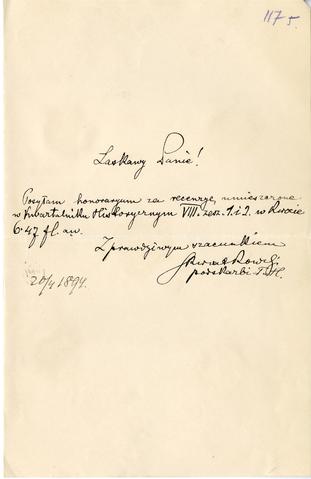 117
Łaskawy Panie!
Posyłam honoraryum za recenzye, umieszczone
w Kwartalniku Historycznym VIII. zesz. 1 i 2. w kwocie
6·47 fl. aw.
Z prawdziwym szacunkiem
podskarbi T. H.
20/4 1894.